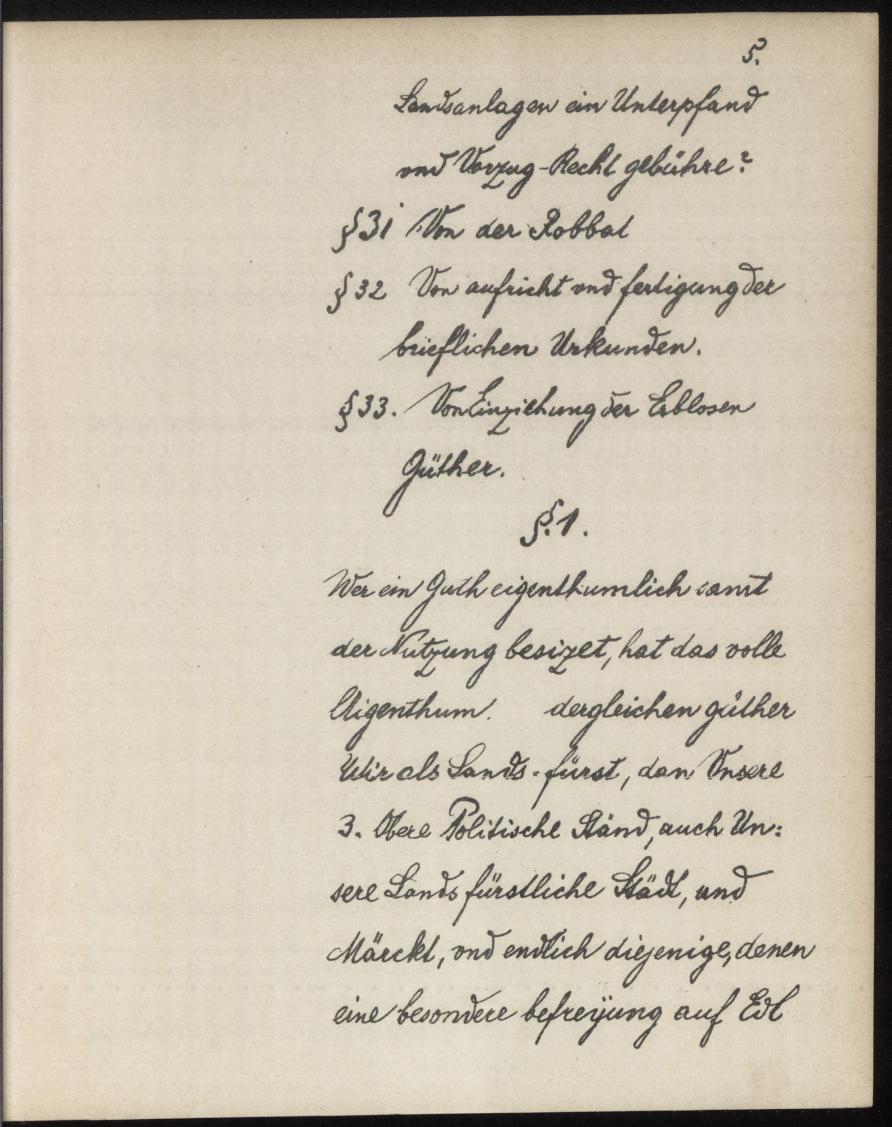 5.
Landsanlagen ein Unterpfand
vnd Vorzug-Recht gebühre?
§ 31 Von der Robbat
§ 32 Von aufricht vnd fertigung der
brieflichen Urkunden.
§ 33. Von Einziehung der Erblosen
Güther.
§. 1.
Wer ein Guth eigenthumlich samt
der Nutzung besizet, hat das volle
Aigenthum. dergleichen güther
Wir als Lands-fürst, dan Vnsere
3. Obere Politische Ständ, auch Un:
sere Landsfürstliche Städt, und
Märckt, vnd endlich diejenige, denen
eine besondere befreÿung auf Edl